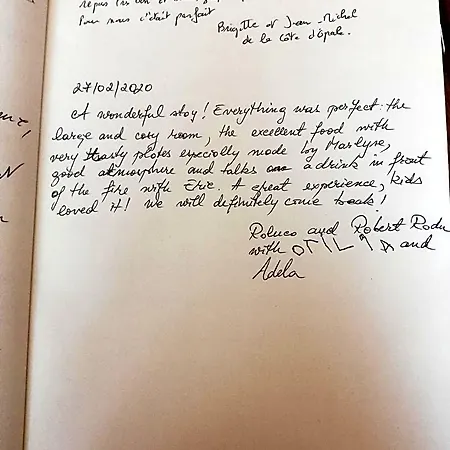 repas
Pour nous c'était parfait
Brigitte et Jean-Michel
de la Côte d'Opale.
27/02/2020
A wonderful stay! Everything was perfect: the
large and cosy room, the excellent food with
very tasty plates especially made by Marlyse,
good atmosphere and talks a drink in front
of the fire with Eric. A great experience, kids
loved it! We will definitely come back!
and Robert Radu
with OTILIA and
Adela